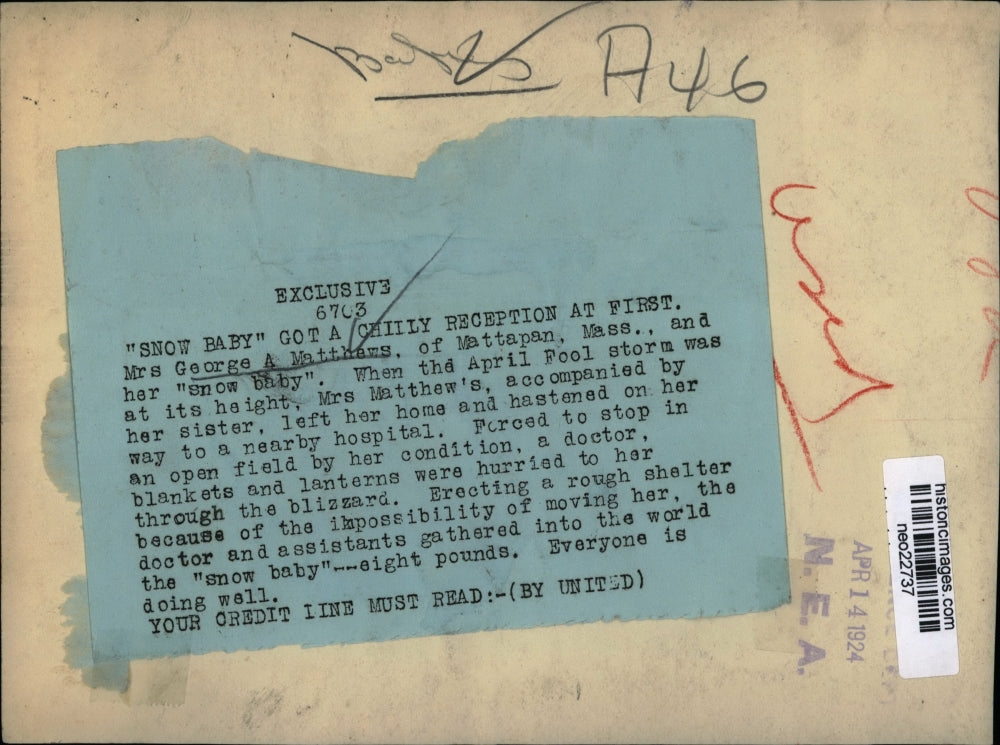 Babies
A46
EXCLUSIVE
6703
"SNOW BABY" GOT A CHILLY RECEPTION AT FIRST.
Mrs George A Matthews, of Mattapan, Mass., and
her "snow baby". When the April Fool storm was
at its height, Mrs Matthew's, accompanied by
her sister, left her home and hastened on her
way to a nearby hospital. Forced to stop in
an open field by her condition, a doctor,
blankets and lanterns were hurried to her
through the blizzard. Erecting a rough shelter
because of the impossibility of moving her, the
doctor and assistants gathered into the world
the "snow baby"--eight pounds. Everyone is
doing well.
YOUR CREDIT LINE MUST READ:-(BY UNITED)
used
N. E. A.
APR 14 1924
historicimages.com
neo22737